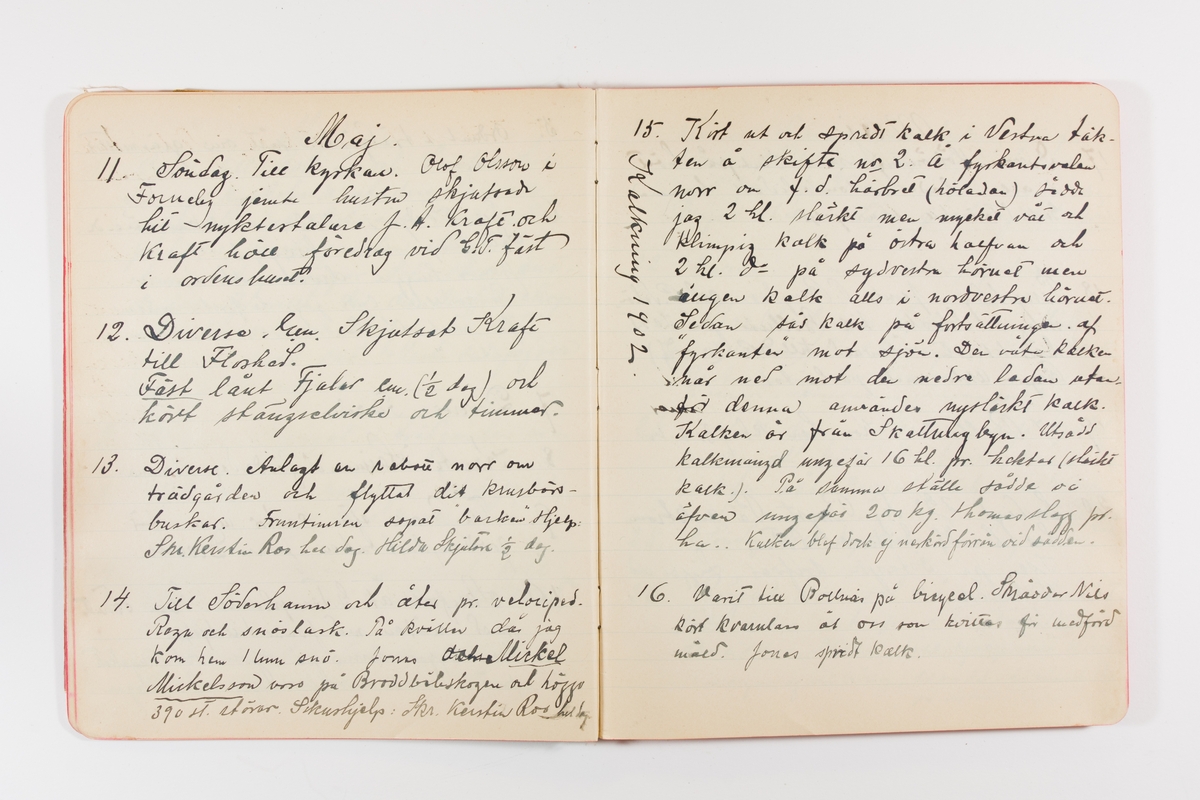 Maj.
11. Söndag. Till kyrkan. Olof Olsson i
Forneby jemte hustru skjutsade
hit nyktertalare J. A. Kraft och
Kraft höll föredrag vid fäst
i ordenshuset.
12. Diverse. Em. Skjutsat Kraft
till Floshed.
Fäst lånt Fjalar em. (½ dag) och
kört stängselvirke och timmer.
13. Diverse. Anlagt en rabatt norr om
trädgården och flyttat dit krusbärs-
buskar. Fruntimren sopat backen. Hjelp:
Skr. Kerstin Ros hel dag. Hilda Skjutare ½ dag.
14. Till Söderhamn och åter pr. velociped.
Regn och snöslask. På kvällen då jag
kom hem 1 tum snö. Jonas Mickel
Mickelsson voro på Broddbäleskogen och höggo
390 st. störar. Skr. Kerstin Ros hel dag
15. Kört ut och spridt kalk i Vestra täk-
ten å skifte no 2. Å fyrkantsvalen
norr om f. d. hårbret (höladan) sådde
jag 2 hl. släckt men mycket våt och
klimpig kalk på östra halfvan och
2 hl. do på sydvestra hörnet men
ingen kalk alls i nordvestra hörnet.
Sedan sås kalk på fortsättningen af
"fyrkanten" mot sjön. Den våta kalken
når ned mot den nedre ladan utan-
för denna användes nysläckt kalk.
Kalken är från Skattungbyn. Utsådd
kalkmängd ungefär 16 hl. pr. hektar (släckt
kalk.). På samma ställe sådde vi
äfven ungefär 200 kg. thomasslagg pr.
ha.. Kalken blef dock ej nerkörd förrän vid sådden.
Kalkning 1902.
16. Varit till Bollnäs på bicycel. Skräddar Nils
kört kvarnlass åt oss som kvittas för medförd
mäld. Jonas spridt kalk.